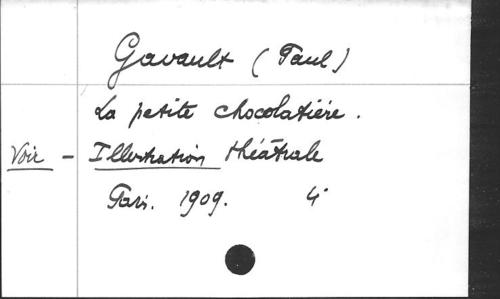 Gavault (Paul)
La petite chocolatière.
Voir - Illustration théâtrale
Paris. 1909. 4°